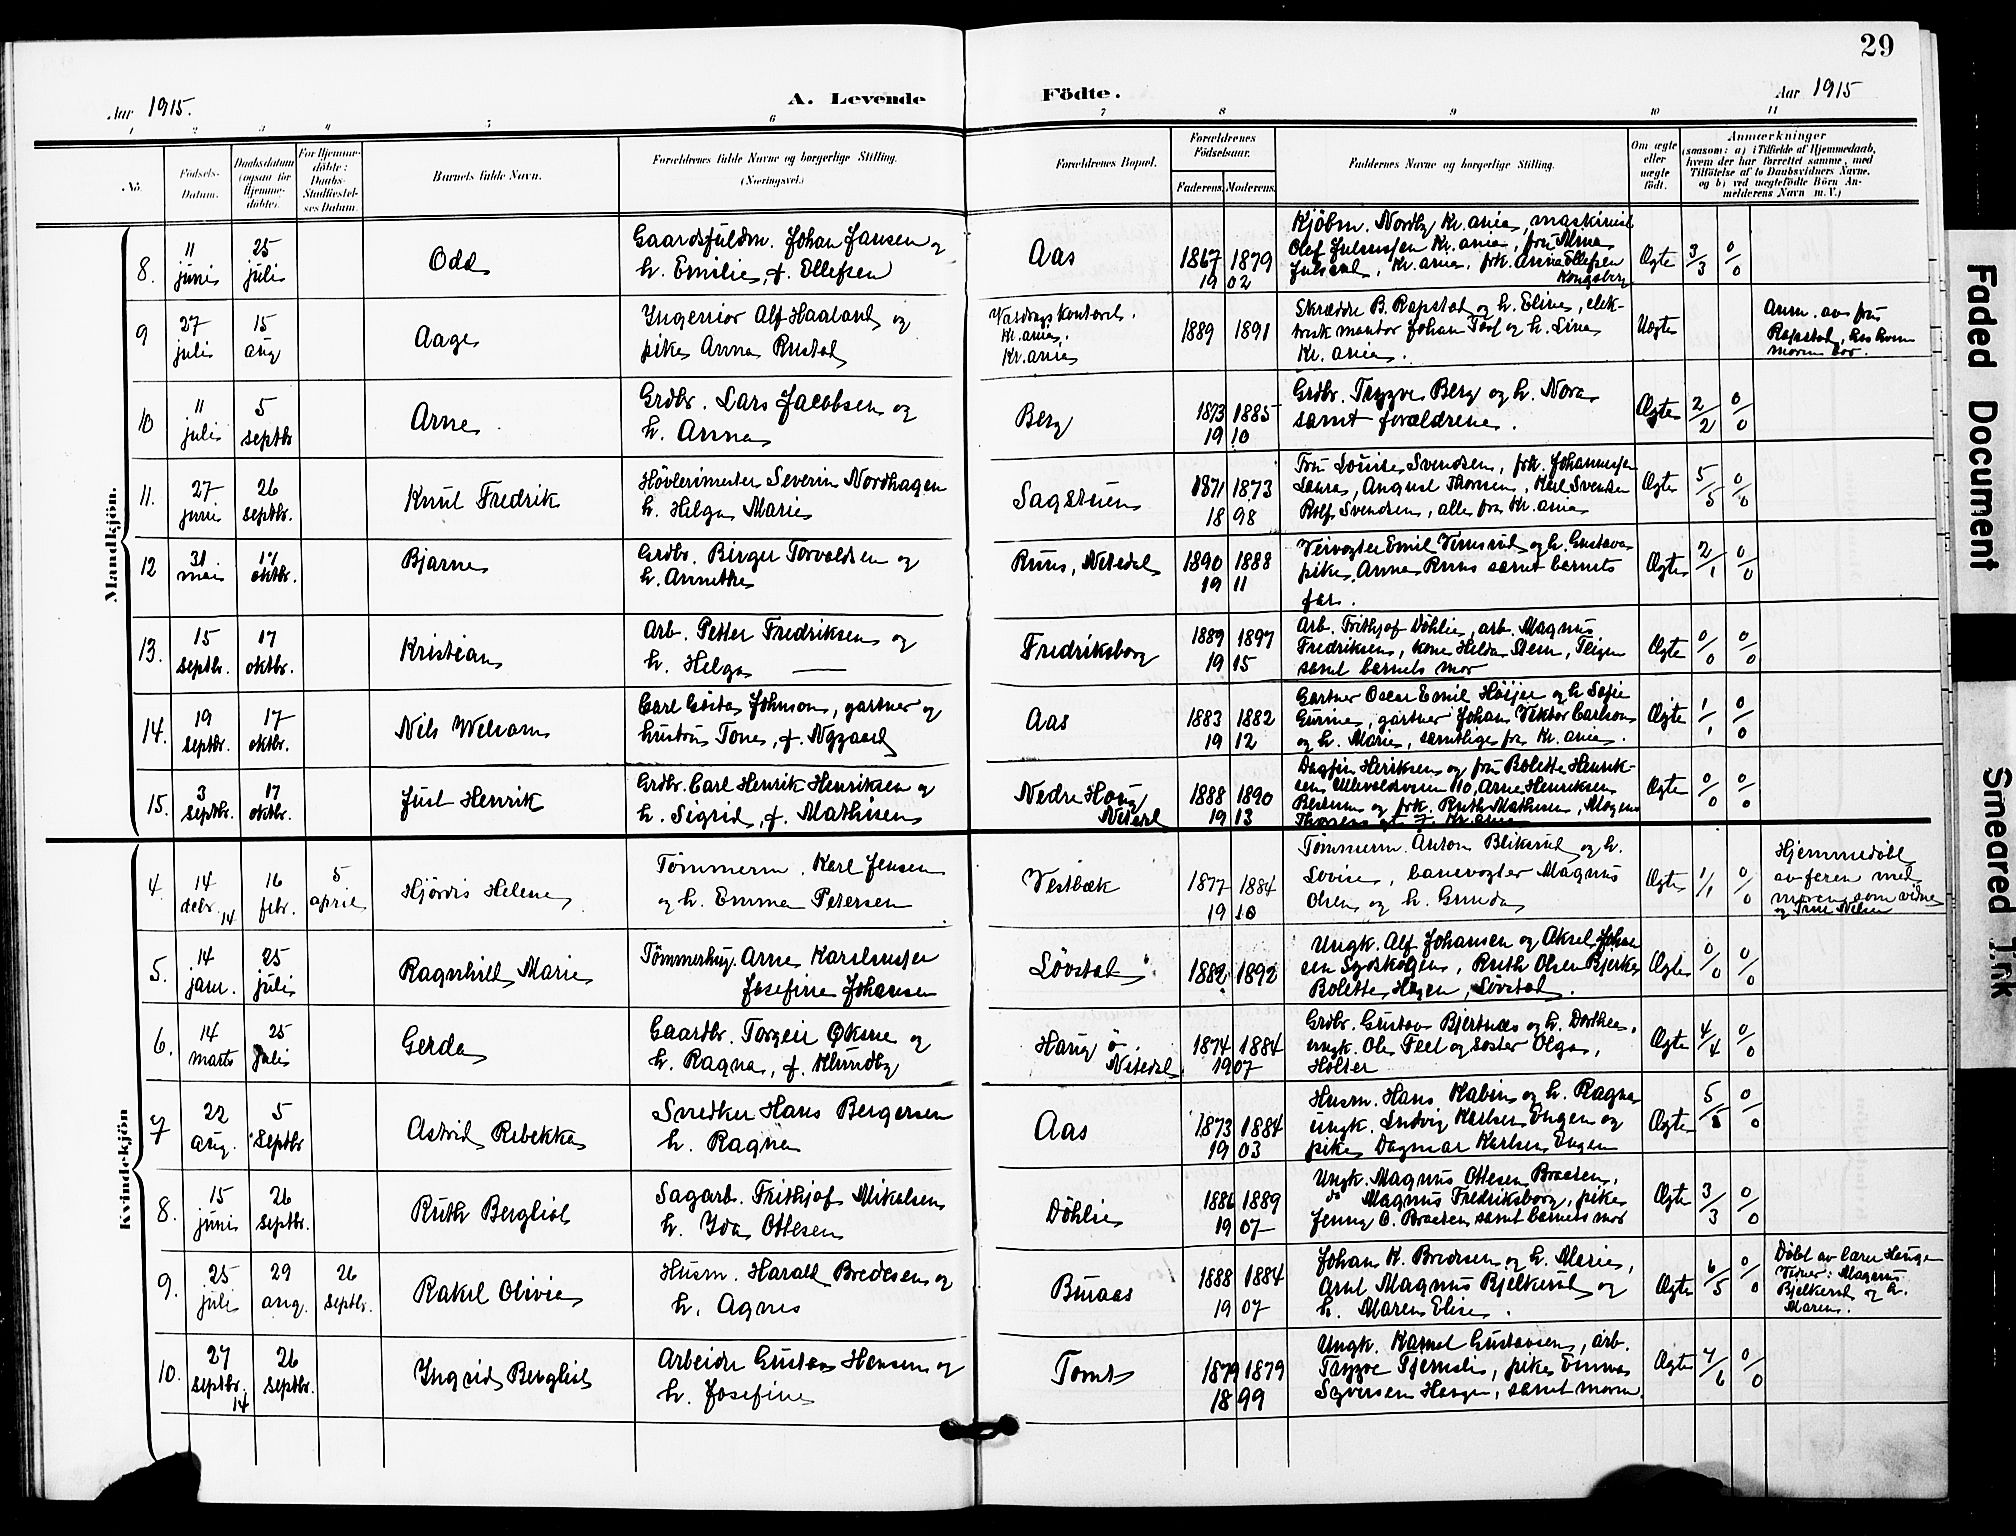 29
Aar 1915.
A. Levende
Födte.
Aar 1915
1 2 3 4 5 6 7 8 9 10 11
No.
Födsels-
Datum.
Daabsdatum
(ogsaa for
Hjemme-
døbte).
For Hjemme-
döbte:
Daabs-
Stadfæstel-
ses Datum.
Barnets fulde Navn.
Forældrenes fulde Navne og borgerlige Stilling.
(Næringsvei.)
Forældrenes Bopæl.
Forældrenes
Födselsaar.
Faderens. Moderens.
Faddernes Navne og borgerlige Stilling.
Om ægte
eller
uægte
født.
Anmærkninger
(saasom: a) i Tilfælde af Hjemmedaab,
hvem der har forrettet samme, med
Tilföielse af to Daabsvidners Navne,
og b) ved uægtefödte Börn An-
melderens Navn m. V.)
Mandkjön.
8.
11
juni
25
juli
Odd
Gaardsfuldm. Johan Jansen og
h. Emilie, f. Ollefsen
Aas
1867 1879
19 02
Kjøbm. Nordby Kr.ania, maskinist
Olaf Julsrud Kr.ania, fru Alma
Julsrud, Kr.ania, frk. Anna Ollefsen
Kongsberg
Ægte
3/3
0/0
9
27
juli
15
aug
Aage
Ingeniør Alf Haaland og
pike Anna Rustad
Vasdragskontoret.
Kr.ania.
Kr.ania
1889 1891
Skrædder B. Rapstad og h. Eline, elek-
trisk montør Johan Torf og h. Lina
Kr.ania.
Uegte
Anm. av fru
Rapstad, hos hvem
moren bor.
10
11
juli
5
septbr
Arne
Grdbr. Lars Jacobsen og
h. Anna
Berg
1873 1885
19 10
Grdbr. Trygve Berg og h. Nora
samt forældrene.
Ægte
2/2
0/0
11.
27
juni
26
septbr.
Knut Fredrik
Høvlerimester Severin Nordhagen
h. Helga Marie
Sagstuen
1871 1873
18 98
Fru Louise Svendsen, frk. Johannessen
Laura, August Thorsen, Karl Svendsen
Rolf Svendsen, alle fra Kr.ania
Ægte
5/5
0/0
12
31
mai
17
oktbr.
Bjarne
Grdbr. Birger Torvaldsen og
h. Annethe
Ruus, Nitedal
1890 1888
19 11
Veivogter Emil og h. Gustava
pike Anna Ruus samt barnets
far.
Ægte
2/1
0/0
13.
15
septbr.
17
oktbr.
Kristian
Arb. Petter Fredriksen og
h. Helga —
Fredriksborg
1889 1897
19 15
Arb. Frithjof Döhlie, arb. Magnus
Fredriksen, kone Helda Steen, Teigen
samt barnets mor
Ægte
0/0
0/0
14.
19
septbr.
17
oktbr.
Nils Weliam
Carl Gösta Johnson, gartner og
hustru Tone, f. Nygaard
Aas
1883 1882
19 12
Gartner Oscar Emil Höijer og h. Sofie
Gurine, gartner Johan Viktor Carlson
og h. Marie, samtlige fra Kr.ania.
Ægte
1/1
0/0
15.
3
septbr.
17
oktbr.
Just Henrik
Grdbr. Carl Henrik Henriksen og
h. Sigrid, f. Mathisen
Nedre Haug
Nitedal
1888 1890
19 13
Dagfin Henriksen og fru Bolette Henrik-
sen Ullevoldsveien 110, Arne Henriksen
Bestum og frk. Ruth Mathisen, Mogens
Thorsens gt. 7. Kr.ania
Ægte
0/0
0/0
Kvindekjön
4.
14
debr. 14
16
febr.
5
april
Hjördis Helene
Tømmerm. Karl Jensen
og h. Emma Petersen
Vestbæk
1877 1884
19 10
Tömmerm. Anton Bliksrud og h.
Lovise, banevogter Magnus
Olsen og h. Gunda
Ægte
1/1
0/0
Hjemmedöbt
av faren med
moren som vidne
og Trine Nilsen
5.
14
janr.
25
juli
Ragnhild Marie
Tömmerhug. Arne Kareliussen
Josefine Johansen
Lövstad
1882 1892
Ungk. Alf Johansen og Aksel Johan-
sen Sydskogen, Ruth Olsen Bjerke
Bolette Hagen, Lövstad.
Ægte
0/0
0/0
6.
14
marts
25
juli
Gerda
Gaardbr. Torgeir Øksne og
h. Ragna, f. Klundby
Haug ö.
Nitedal
1874 1884
1907
Grdbr. Gustav Bjertnæs og h. Dorthea,
ungk. Ole Teet og söster Olga,
Holter
Ægte
4/4
0/0
7
22
aug.
5
septbr
Astrid Rebekka
Snedker Hans Bergersen
h. Ragna
Aas
1873 1884
19 03
Husm. Hans Kabin og h. Ragna
ungk. Ludvig Karlsen Engen og
pike Dagmar Karlsen Engen
Ægte
5/5
0/0
8.
15
juni
26
septbr.
Ruth Bergliot
Sagarb. Frithjof Mikalsen
h. Ida Ottesen
Döhlie
1886 1889
19 07
Ungk. Magnus Ottesen Braaten,
do Magnus Fredriksborg, pike
Jenny O. Braaten samt barnets mor
Ægte
3/3
0/0
9.
25
juli
29
aug.
26
septbr.
Rakel Olivie
Husm. Harald Bredesen og
h. Agnes
Buraas
1888 1884
19 07
Johan K. Bredesen og h. Marie,
Arnt Magnus Bjelkerud og
h. Maren Elise.
Ægte
6/5
0/0
Døbt av lærer Hauge
Vidner: Magnus
Bjelkerud og h.
Maren.
10.
27
septbr. 14
26
septbr.
Ingrid Bergliot
Arbeider Gustav Hansen og
h. Josefine
Tomt
1879 1879
18 99
Ungk. Kornel Gustavsen, arb.
Trygve Tjernsli, pike Emma
Syversen Haugen, samt moren.
Ægte
7/6
0/0
Faded Document
Smeared Ink